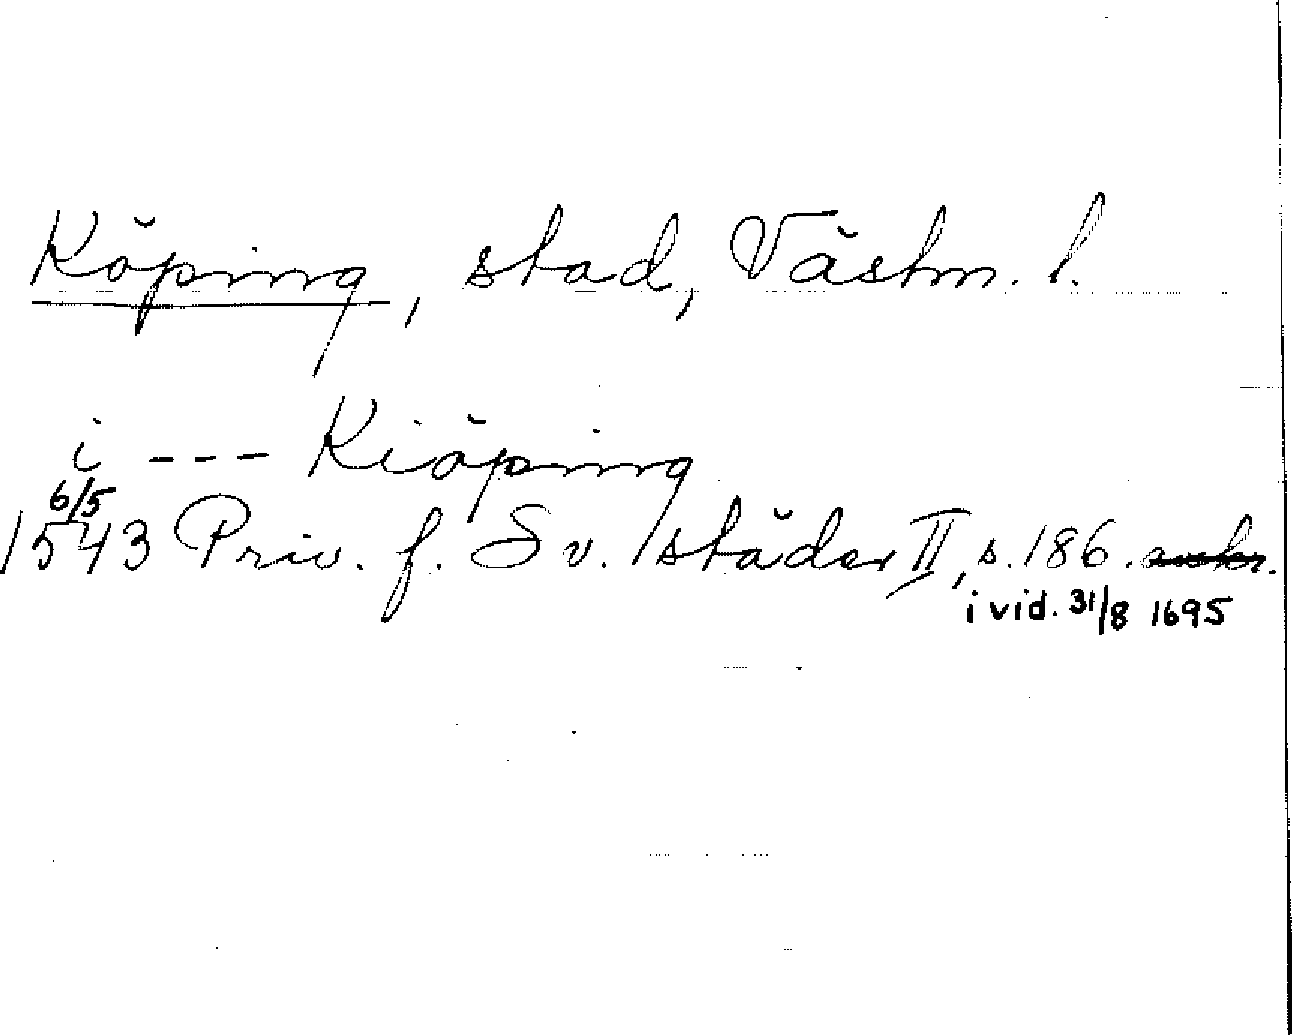 Köping, stad, Västm. l.
i --- Kiöping
6/5
1543 Priv. f. Sv. städer II, s. 186.
i vid. 31/8 1695